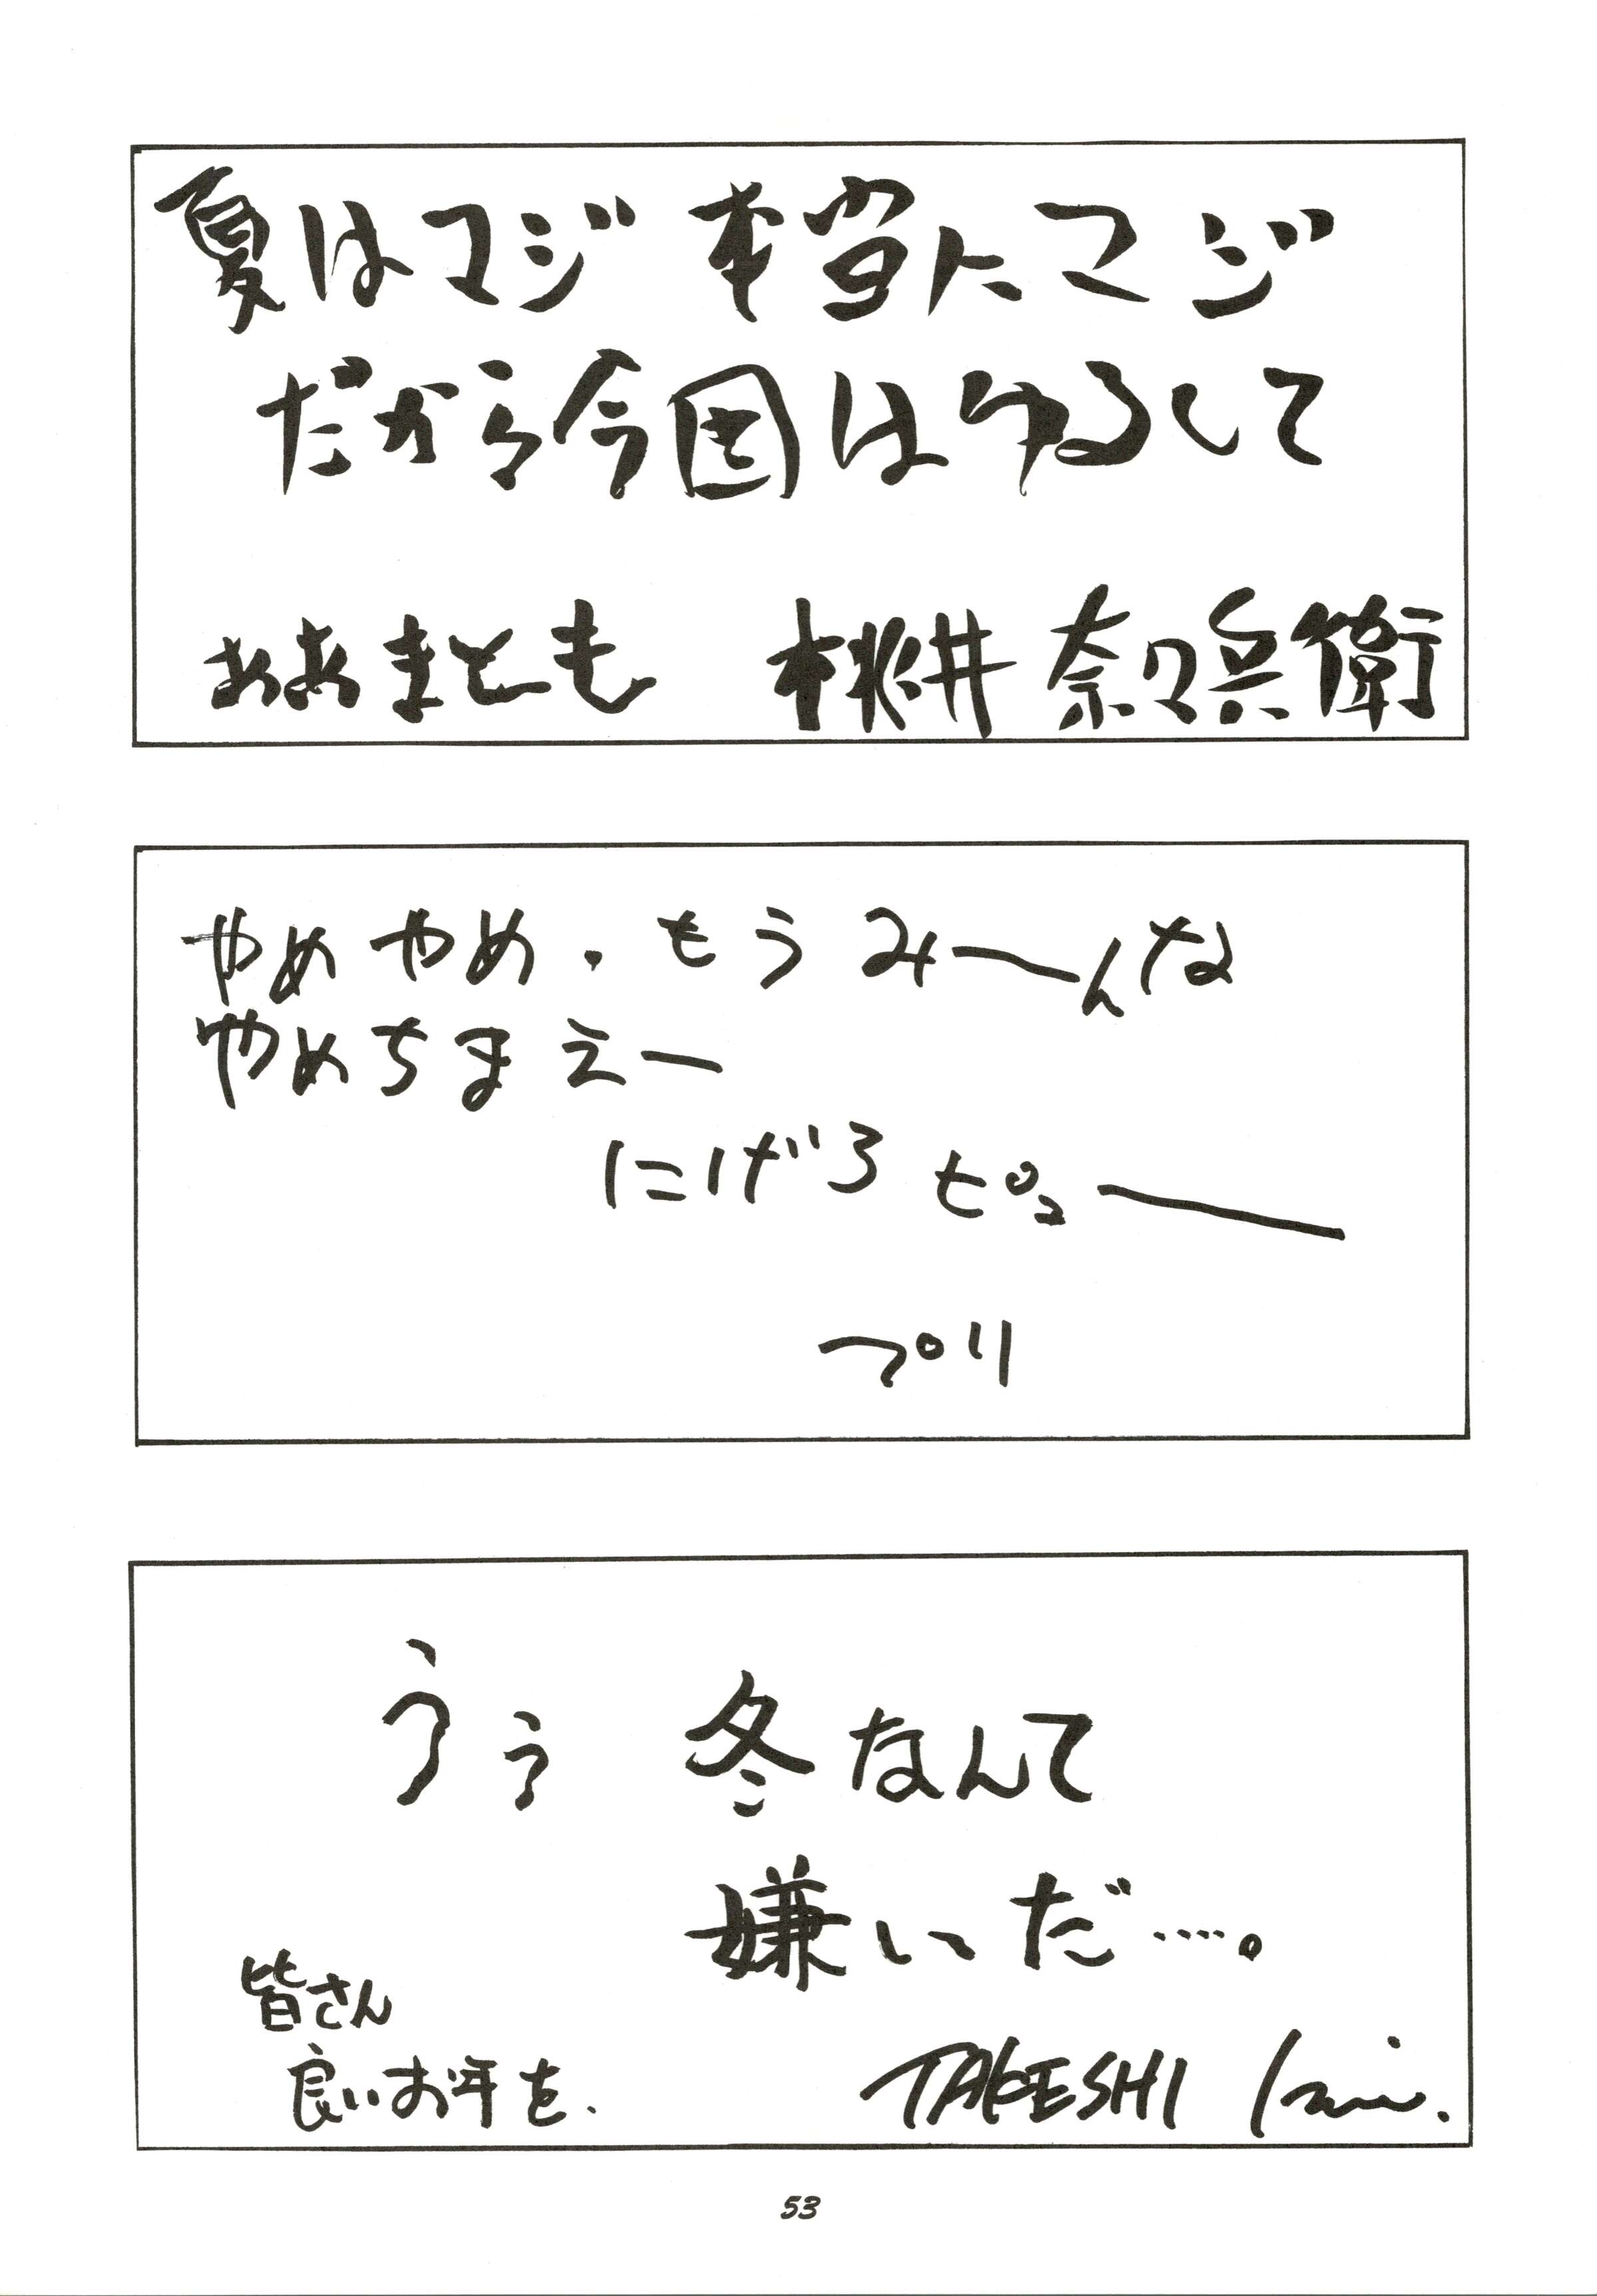 夏はマジ 本当にマジ
だから今回はゆるして
ああまとも 桃井 奈々兵衛
やめやめ.もうみーんな
やめちまえー
にげろピューー
プリ
うぅ 冬なんて
嫌いだ….。
皆さん
良いお年を.
TAKESHI
53